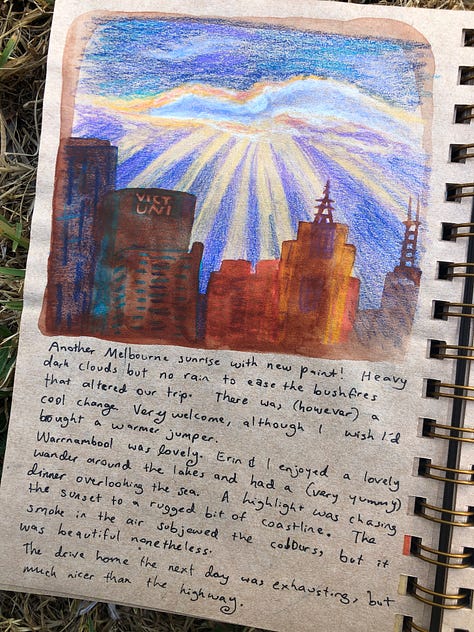 VICT
UNI
Another Melbourne sunrise with new paint! Heavy
dark clouds but no rain to ease the bushfires
that altered our trip. There was (however) a
cool change. Very welcome, although I wish I'd
bought a warmer jumper.
Warrnambool was lovely. Erin & I enjoyed a lovely
wander around the lakes and had a (very yummy)
dinner overlooking the sea. A highlight was chasing
the sunset to a rugged bit of coastline. The
smoke in the air the colours, but it
was beautiful nonetheless.
The drive home the next day was exhausting, but
much nicer than the highway.